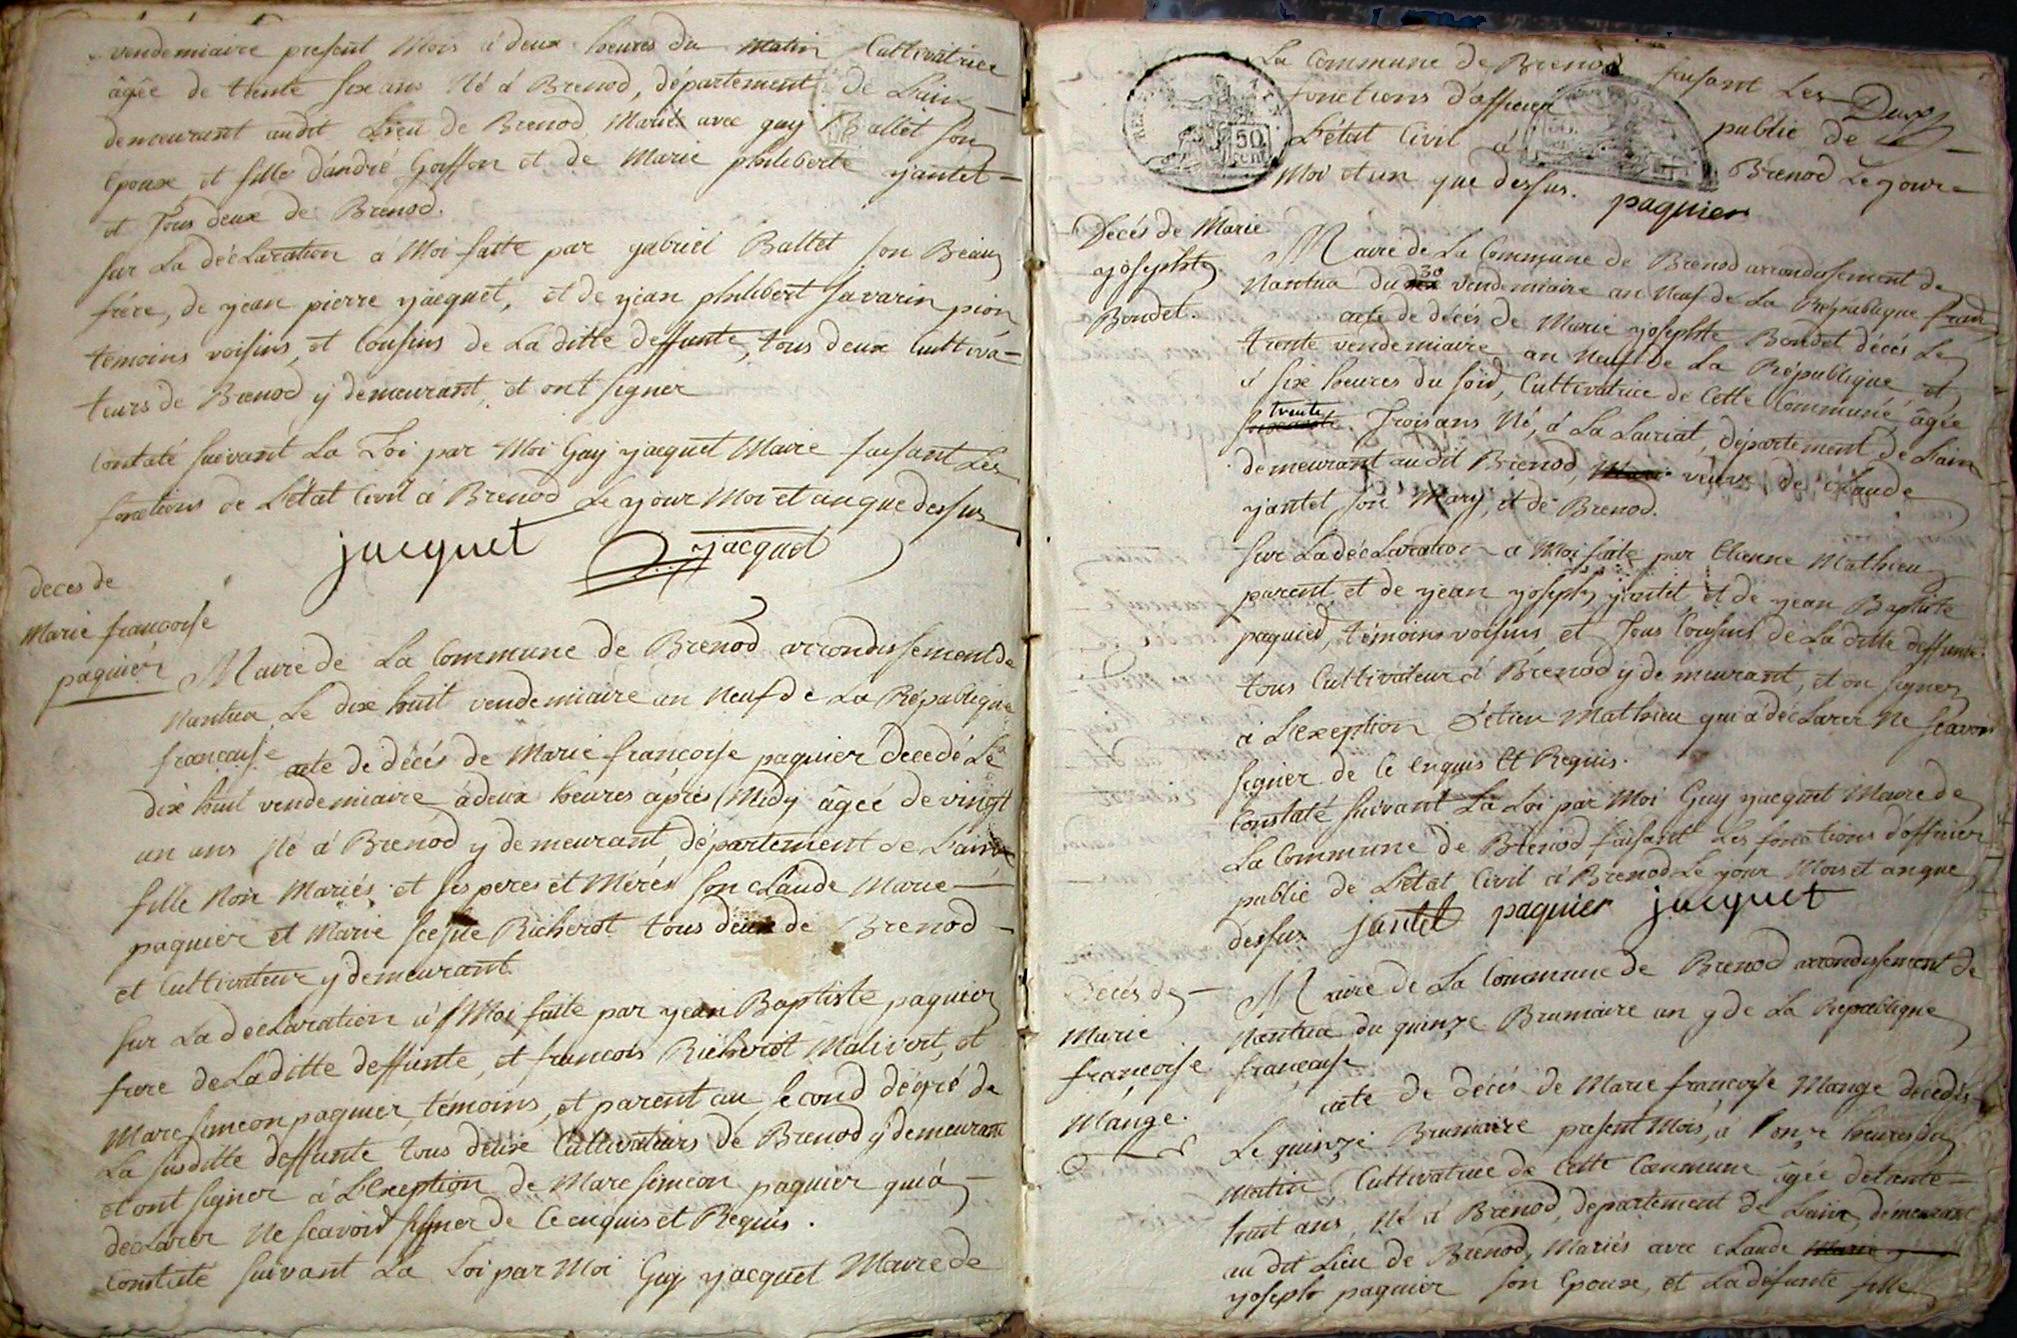 vendemiaire present Mois à deux heures du matin Cultivatrice
âgée de trente six ans Né à Brenod, département de L'ain
demeurant audit Lieu de Brenod Mariée avec guy Ballet son
Epoux et fille d'andré Goyffon et de Marie philiberte yantet
et tous deux de Brenod.
sur La déclaration a Moi faite par yabriel Ballet son Beau
frère, de yean pierre yacquet, et de yean philibert Savarin pion
témoins voisins, et Cousins de La ditte deffunte, tous deux Cultiva-
teurs de Brenod y demeurant, et ont signer
Constaté suivant La Loi par Moi Guy yacquet Maire faisant Les
fonctions de L'état Civil à Brenod Le your Moi et an que dessus
jacquet yjacquet
deces de
Marie francoise
paquier
Maire de La Commune de Brenod arrondissement de
Nantua Le dix huit vendemiaire an Neuf de La République
françause
acte de décés de Marie françoise paquier decedé Le
dix huit vendemiaire à deux heures après Midy âgée de vingt
un ans Né à Brenod y demeurant département de L'ain
fille Non Mariés et ses peres et Méres son Claude Marie
paquier et Marie Richerot tous deux de Brenod
et Cultivateur y demeurant.
sur La déclaration à Moi faite par yean Baptiste paquier
frere de Laditte deffunte, et francois Richerot Malivert, et
Marc simeon paquier, témoins, et parent au second dégré de
La susditte deffunte tous deux Cultivateurs de Brenod y demeurant
et ont signer à L'Exeption de Marc simeon paquier qui à
déclarer Ne scavoir signer de ce enquis et Requis.
Constaté suivant La Loi par Moi Guy yacquet Maire de
La Commune de Brenod faisant Les
fonctions d'officier public de
L'état Civil à Brenod Le your
Moi et an que dessus. paquier
50
cent
Décés de Marie
yosephte
Bondet.
Maire de La Commune de Brenod arrondissement de
Nantua du 30 vendemiaire an Neuf de La République
acte de décés de Marie yosephte Bondet décés Le
trente vendemiaire an Neuf de La République et
à six heures du soir, Cultivatrice de Cette Commune, âgée
trente trois ans Né, à La Lairiat, département de L'ain
demeurant audit Brenod, veuve de Claude
yantet son Mary, et de Brenod.
Sur La déclaration a Moi faite par Etienne Mathieu
parent, et de yean yoseph yantet et de yean Baptiste
paquier, témoins voisins, et tous Cousins de La ditte deffunte.
tous Cultivateur à Brenod y demeurant, et on signer
à L'exeption d'étien Mathieu qui à déclarer Ne scavoir
signer de Ce enquis Et Requis.
Constaté suivant La Loi par Moi Guy yacquet Maire de
La Commune de Brenod faisant Les fonctions d'officier
public de L'état Civil à Brenod Le your Mois et an que
dessus jantet paquier jacquet
Décés de
Marie
françoise
Mange.
Maire de La Commune de Brenod arrondissement de
Nantua du quinze Brumaire an 9 de La République
françause
acte de décés de Marie françoise Mange decedés
Le quinze Brumaire present Mois, à onze heures du
Matin Cultivatrice de Cette Commune âgée de trente
huit ans, Né à Brenod, département de L'ain, démeurant
au dit Lieu de Brenod, Mariés avec Claude Marie
yoseph paquier son Epoux, et La défunte fille